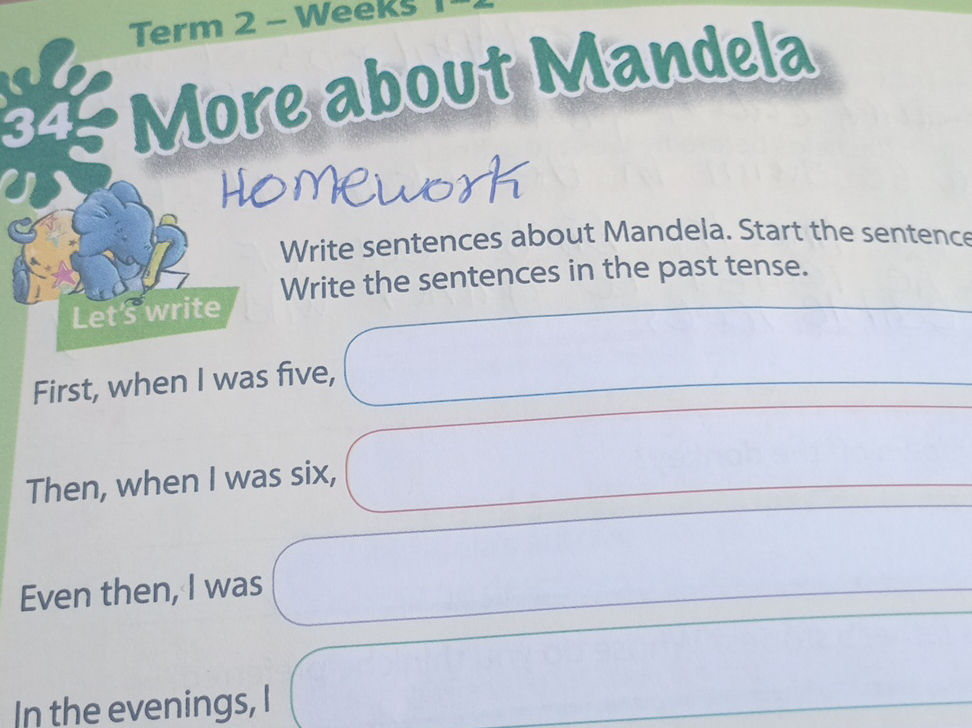 Term 2 – Weeks 1–2
34
More about Mandela
Homework
Write sentences about Mandela. Start the sentence
Write the sentences in the past tense.
Let's write
First, when I was five,
Then, when I was six,
Even then, I was
In the evenings, I